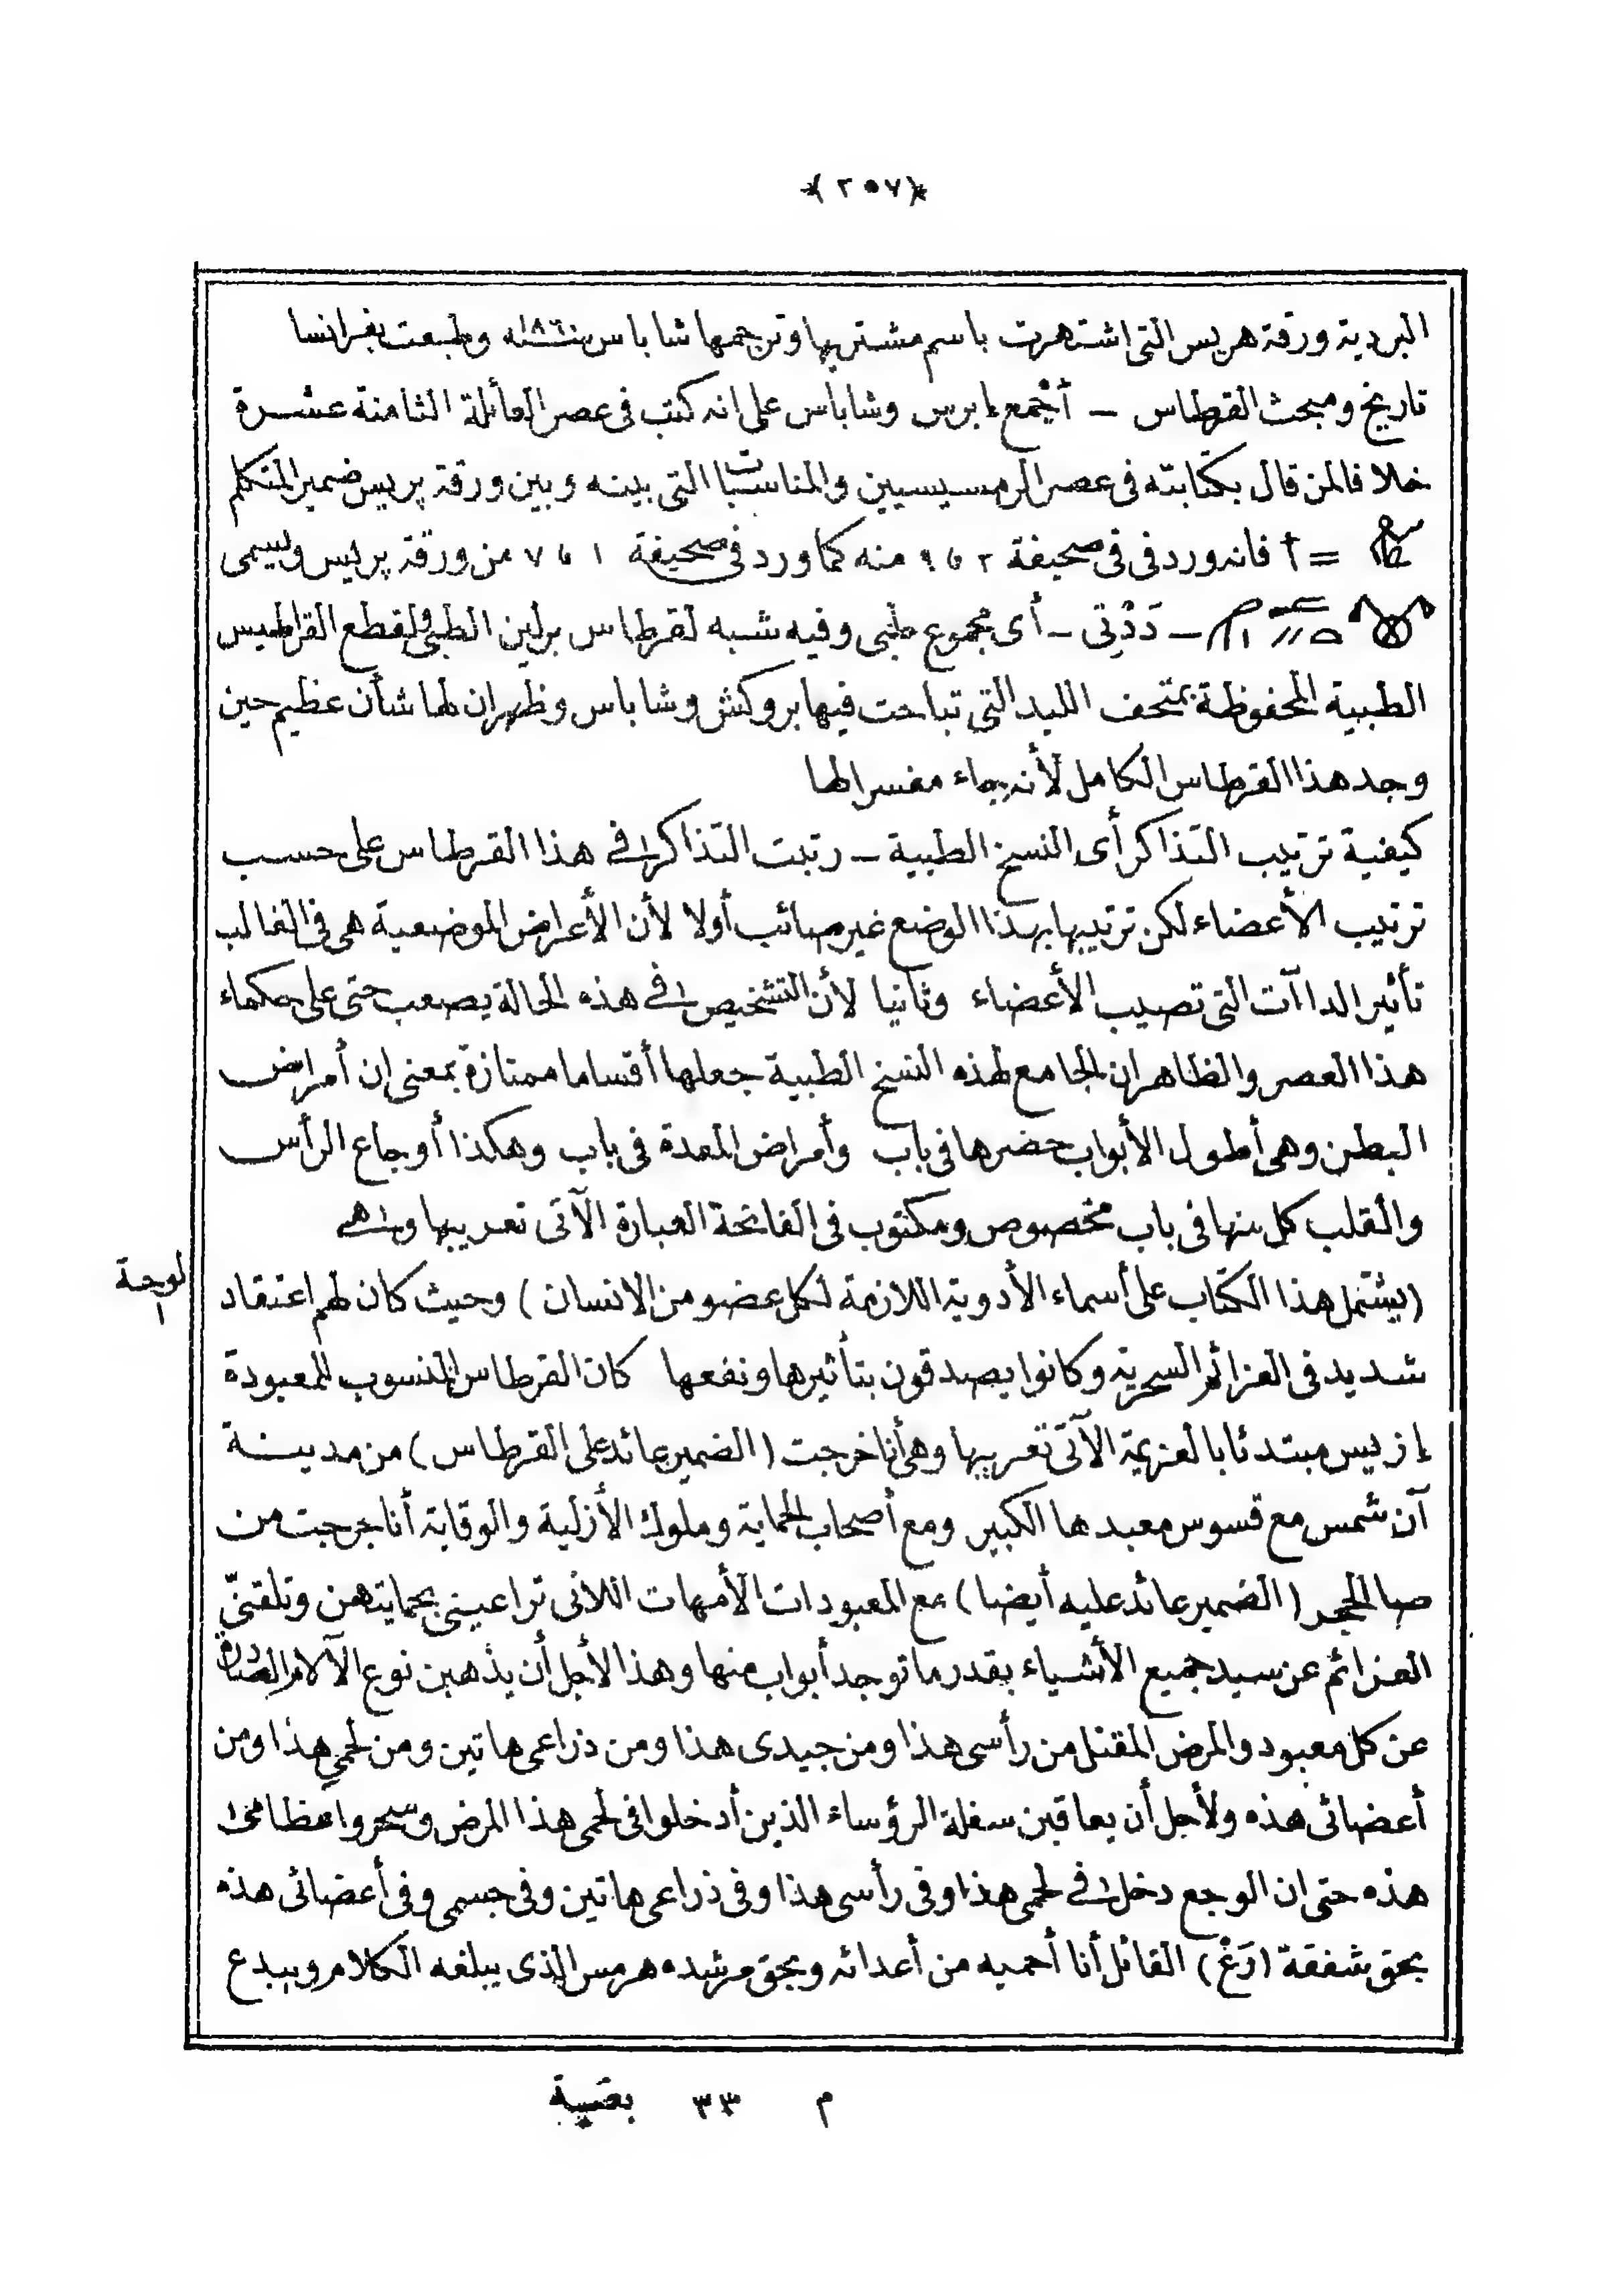 ﴿٢٥٧﴾
البردية ورقة هريس التى اشتهرت باسم مشتريها وترجمها شاباس سنة وطبعت بفرانسا
تاريخ ومبحث القرطاس — أجمع إبرس وشاباس على انه كتب فى عصر العائلة الثامنة عشرة
خلافا لمن قال بكتابته فى عصر الرمسيسيين والمناسبات التى بينه وبين ورقة پريس ضمير المتكلم
= † فانه ورد فى فى صحيفة ٢ و ٩ منه كما ورد فى صحيفة ١ و ٧ من ورقة پريس ويسمى
— دَدْتِى — أى مجموع طبى وفيه شبه لقرطاس برلين الطبى ولقطع القراطيس
الطبية المحفوظة بمتحف الليد التى تباحث فيها بروكش وشاباس وظهر ان لها شأن عظيم حين
وجد هذا القرطاس الكامل لأنه جاء مفسرا لها
كيفية ترتيب التذاكر أى النسخ الطبية — رتبت التذاكر فى هذا القرطاس على حسب
ترتيب الأعضاء لكن ترتيبها بهذا الوضع غير صائب أولا لأن الأعراض الموضعية هى فى الغالب
تأثير الداآت التى تصيب الأعضاء وثانيا لأن التشخيص فى هذه الحالة يصعب حتى على حكماء
هذا العصر والظاهر ان الجامع لهذه النسخ الطبية جعلها أقساما ممتازة بمعنى ان أمراض
البطن وهى أطول الأبواب حضرها فى باب وأمراض المعدة فى باب وهكذا أوجاع الرأس
والقلب كل منها فى باب مخصوص ومكتوب فى الفاتحة العبارة الآتى تعريبها وهى
لوحة
١
(يشتمل هذا الكتاب على أسماء الأدوية اللازمة لكل عضو من الانسان) وحيث كان لهم اعتقاد
شديد فى العزائم السحرية وكانوا يصدقون بتأثيرها ونفعها كان القرطاس المنسوب للمعبودة
إزيس مبتدئا بالعزيمة الآتى تعريبها وهى أنا خرجت (الضمير عائد على القرطاس) من مدينة
آن شمس مع قسوس معبدها الكبير ومع أصحاب الحماية وملوك الأزلية والوقاية أنا خرجت من
صا الحجر (الضمير عائد عليه أيضا) مع المعبودات الأمهات اللائى تراعينى بحمايتهن وتلقنّى
العزائم عن سيد جميع الأشياء بقدر ما توجد أبواب منها وهذا لأجل أن يذهبن نوع الآلام الصادرة
عن كل معبود والمرض المقتل من رأسى هذا ومن جيدى هذا ومن ذراعى هاتين ومن لحمى هذا ومن
أعضائى هذه ولأجل أن يعاقبن سفلة الرؤساء الذين أدخلوا فى لحمى هذا المرض وسحروا عظامى
هذه حتى ان الوجع دخل فى لحمى هذا وفى رأسى هذا وفى ذراعى هاتين وفى جسمى وفى أعضائى هذه
بحق شفقة (رَعْ) القائل أنا أحميه من أعدائه وبحق مرشده هرمس الذى يبلغه الكلام ويبدع
م ٣٣ بقية